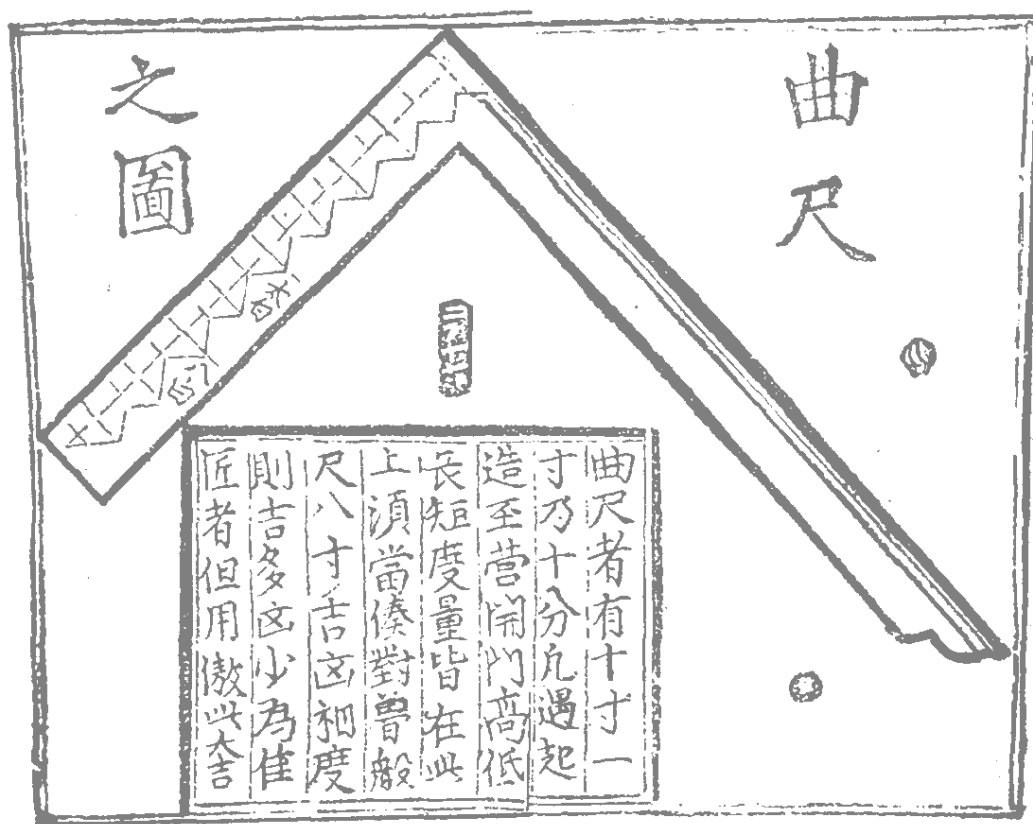 曲尺
之圖
曲尺者有十寸一
寸乃十分凡遇起
造至营開門高低
長短度量皆在此
上湏當湊對魯般
尺八寸吉凶相度
則吉多凶少為佳
匠者但用倣此大吉